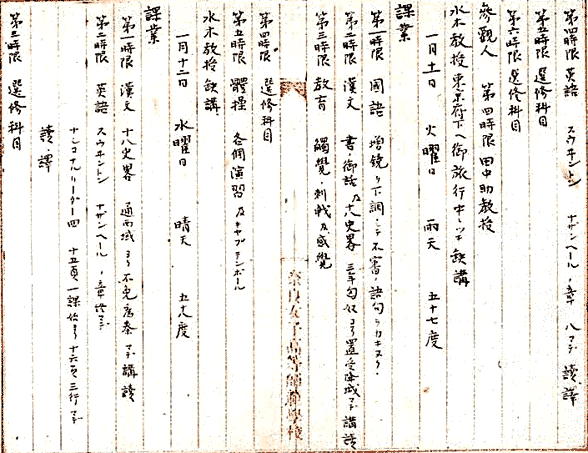 第四時限 英語 スウヰントン ナザンヘール ノ章 八マデ 讀譯
第五時限 選修科目
第六時限 選修科目
參觀人 第四時限 田中助教授
水木教授東京府下ヘ御旅行中ニツキ缺講
一月十一日 火曜日 雨天 五十七度
課業
第一時限 國語 増鏡ノ下調ニテ不審ノ語句ラカキヌク
第二時限 漢文 書ノ御話及十八史畧 三年匈奴ヨリ置受降城マデ 講讀
第三時限 教育 觸覺 刺戟及感覺
第四時限 選修科目
第五時限 體操 各個演習 及キャプテンボール
水木教授缺講
一月十二日 水曜日 晴天 五十八度
課業
第一時限 漢文 十八史畧 通西域ヨリ不免爲秦マデ 講讀
第二時限 英語 スウヰントン ナザンヘール ノ章終マデ
ナショナルリーダー四 十五頁一課始ヨリ十六頁三行マデ
讀、譯
第三時限 選修科目
奈良女子高等師範學校